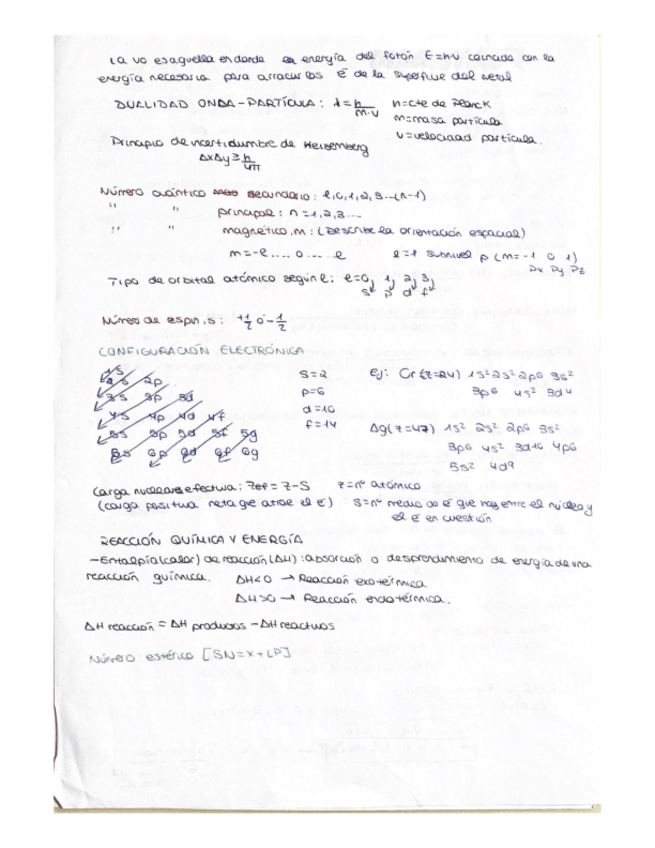 La νo es aquella en donde la energía del fotón E=h·ν coincide con la
energía necesaria para arrancar los e⁻ de la superficie del metal
DUALIDAD ONDA-PARTÍCULA: λ = h/m·v h=cte de Planck
m=masa partícula
v=velocidad partícula.
Principio de incertidumbre de Heisenberg
ΔxΔy ≥ h/4π
Número cuántico secundario: l, 0, 1, 2, 3...(n-1)
" " principal: n=1, 2, 3...
" " magnético, m: (Describe la orientación espacial)
m=-l .... 0 .... l l=1 subnivel p (m=-1 0 1)
Px Py Pz
Tipo de orbital atómico según l: l=0, 1, 2, 3,
s p d f
Número de espín, s: +1/2 ó -1/2
CONFIGURACIÓN ELECTRÓNICA
1s
2s 2p
3s 3p 3d
4s 4p 4d 4f
5s 5p 5d 5f 5g
6s 6p 6d 6f 6g
s=2
p=6
d=10
f=14
Ej: Cr(z=24) 1s² 2s² 2p6 3s²
3p6 4s² 3d4
Ag(z=47) 1s² 2s² 2p6 3s²
3p6 4s² 3d10 4p6
5s² 4d9
Carga nuclear efectiva: Zef = Z-S Z=nº atómico
(carga positiva neta que atrae el e⁻) S=nº medio de e⁻ que hay entre el núcleo y
el e⁻ en cuestión
REACCIÓN QUÍMICA Y ENERGÍA
-Entalpía(calor) de reacción(ΔH): absorción o desprendimiento de energía de una
reacción química. ΔH<0 → Reacción exotérmica
ΔH>0 → Reacción endotérmica.
ΔH reacción = ΔH productos - ΔH reactivos
Número estérico [SN=X+LP]